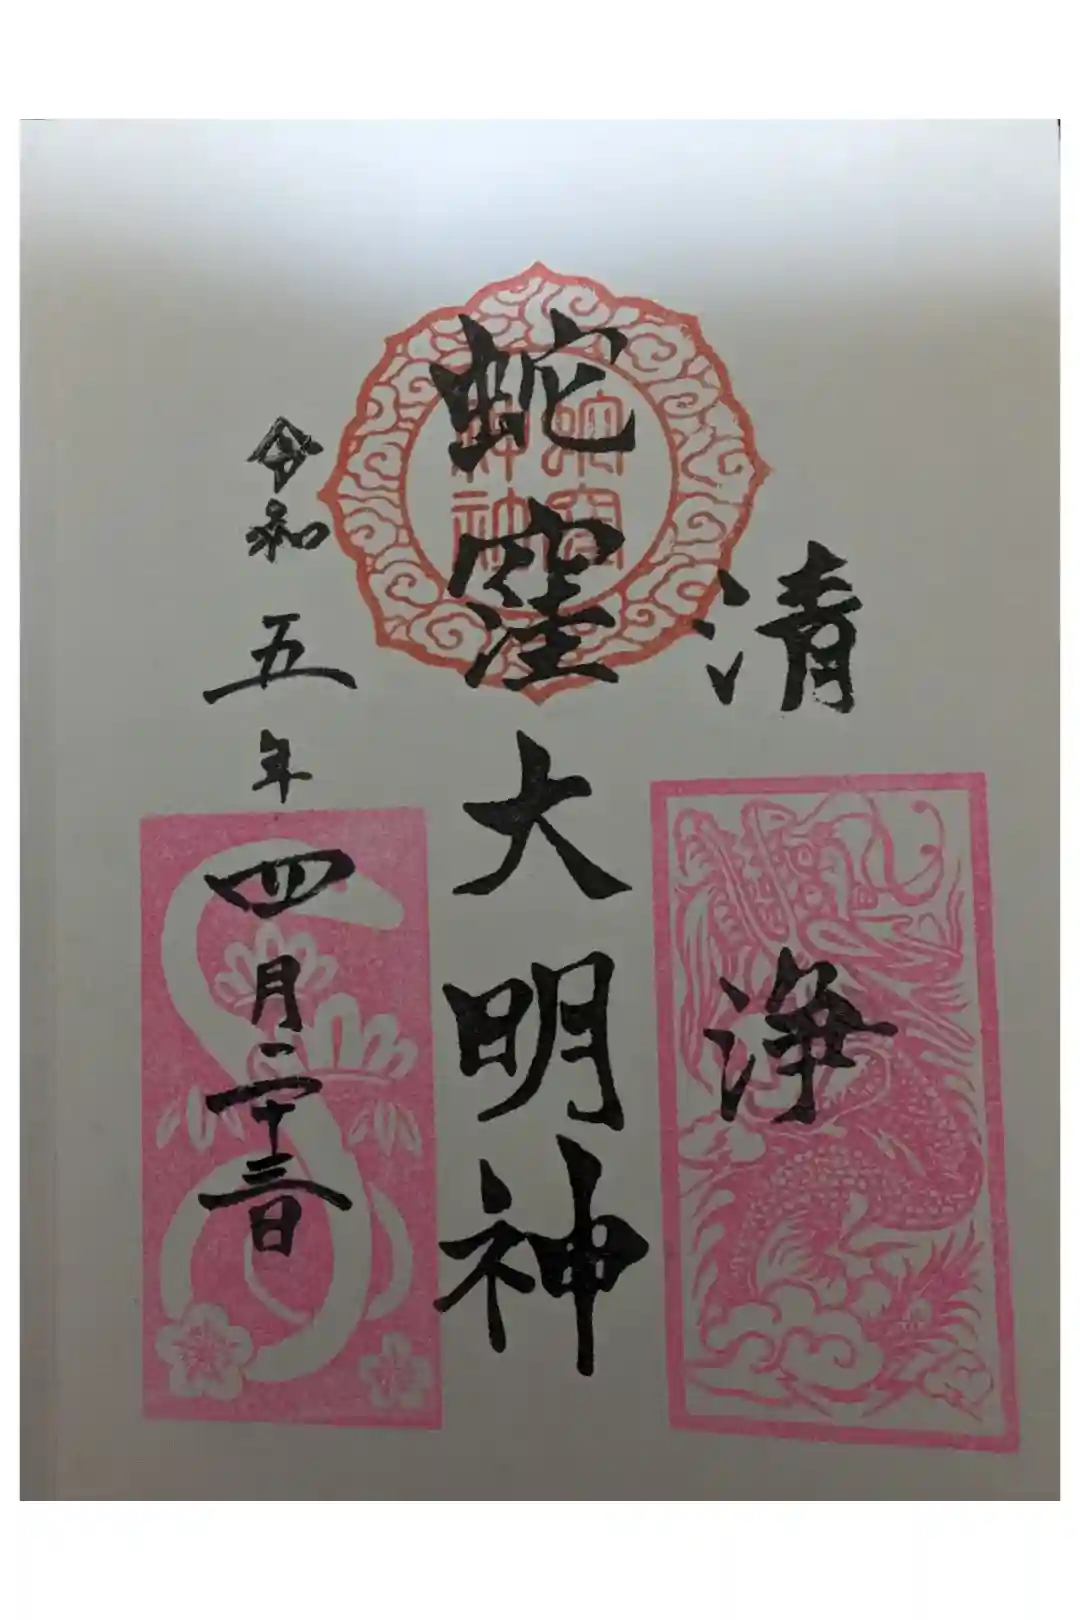 清浄
蛇窪大明神
蛇窪
神社
令和五年四月二十三日